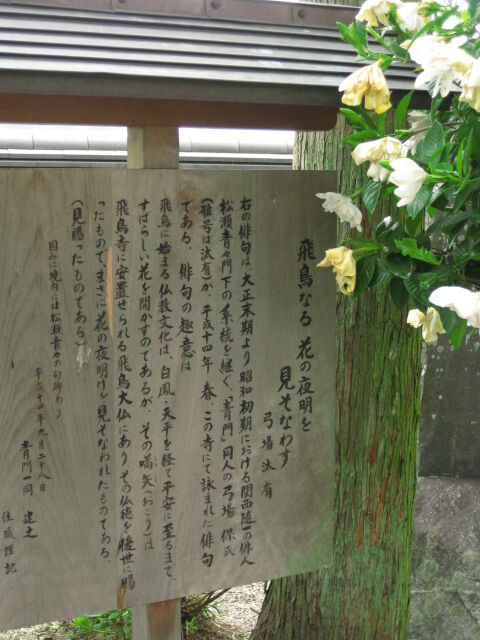 飛鳥なる 花の夜明を
見そなわす
弓場汰有
右の俳句は大正末期より昭和初期における関西随一の俳人
松瀬青々門下の系統を継ぐ、「青門」同人の弓場 保氏
(雅号は汰有)が、平成十四年 春 この寺にて詠まれた俳句
である。俳句の趣意は
飛鳥に始まる仏教文化は、白鳳、天平を経て平安に至るまで、
すばらしい花を開かすのであるが、その嚆矢(おこり)は
飛鳥寺に安置せられる飛鳥大仏にあり、その仏徳を後世に賜
ったもので、まさに花の夜明けを見そなわれたものである。
(見賜ったものである)
因みに境内には松瀬青々の句碑あり
平成十四年九月二十八日
青門一同 建之
住職謹記